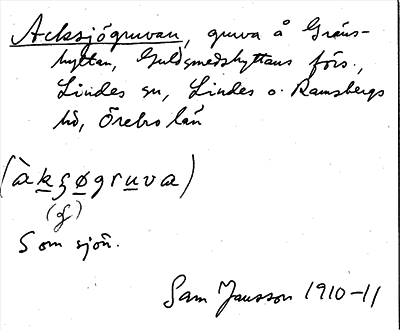 Acksjögruvan, gruva å Gräns-
hyttan, Guldsmedshyttans förs.,
Lindes sn, Lindes o. Ramsbergs
hd, Örebro län
(àkʂøgruva)
(ʃ)
Som sjön.
Sam Jansson 1910-11